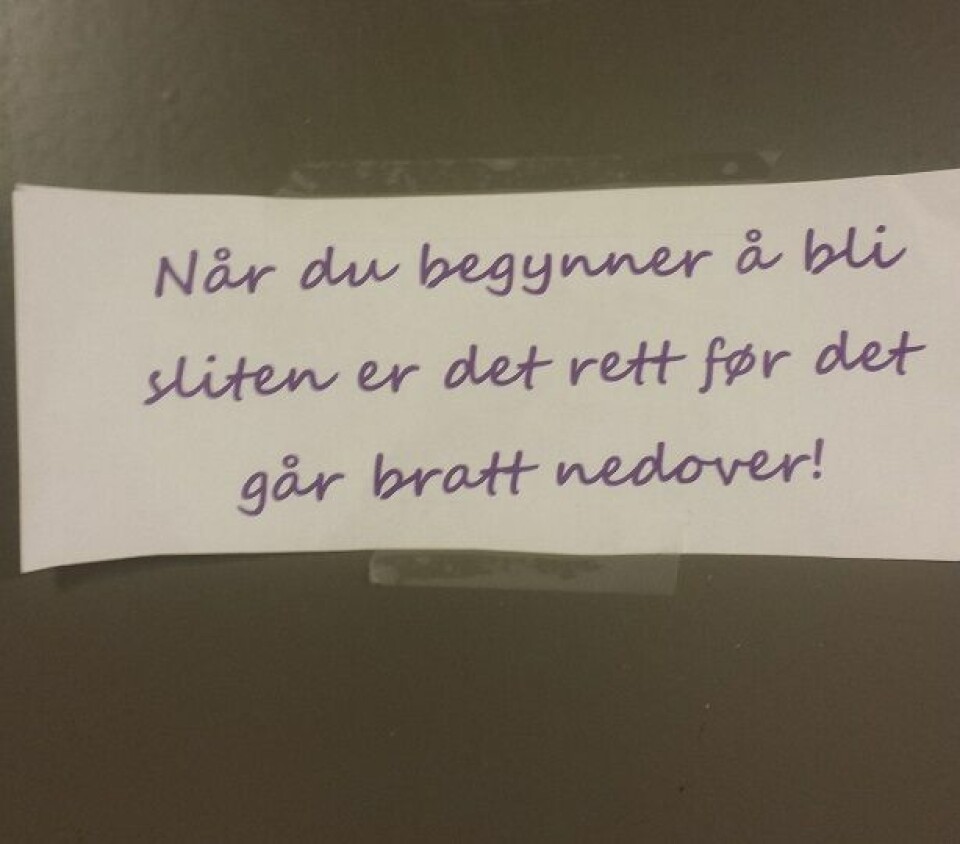 Når du begynner å bli
sliten er det rett før det
går bratt nedover!